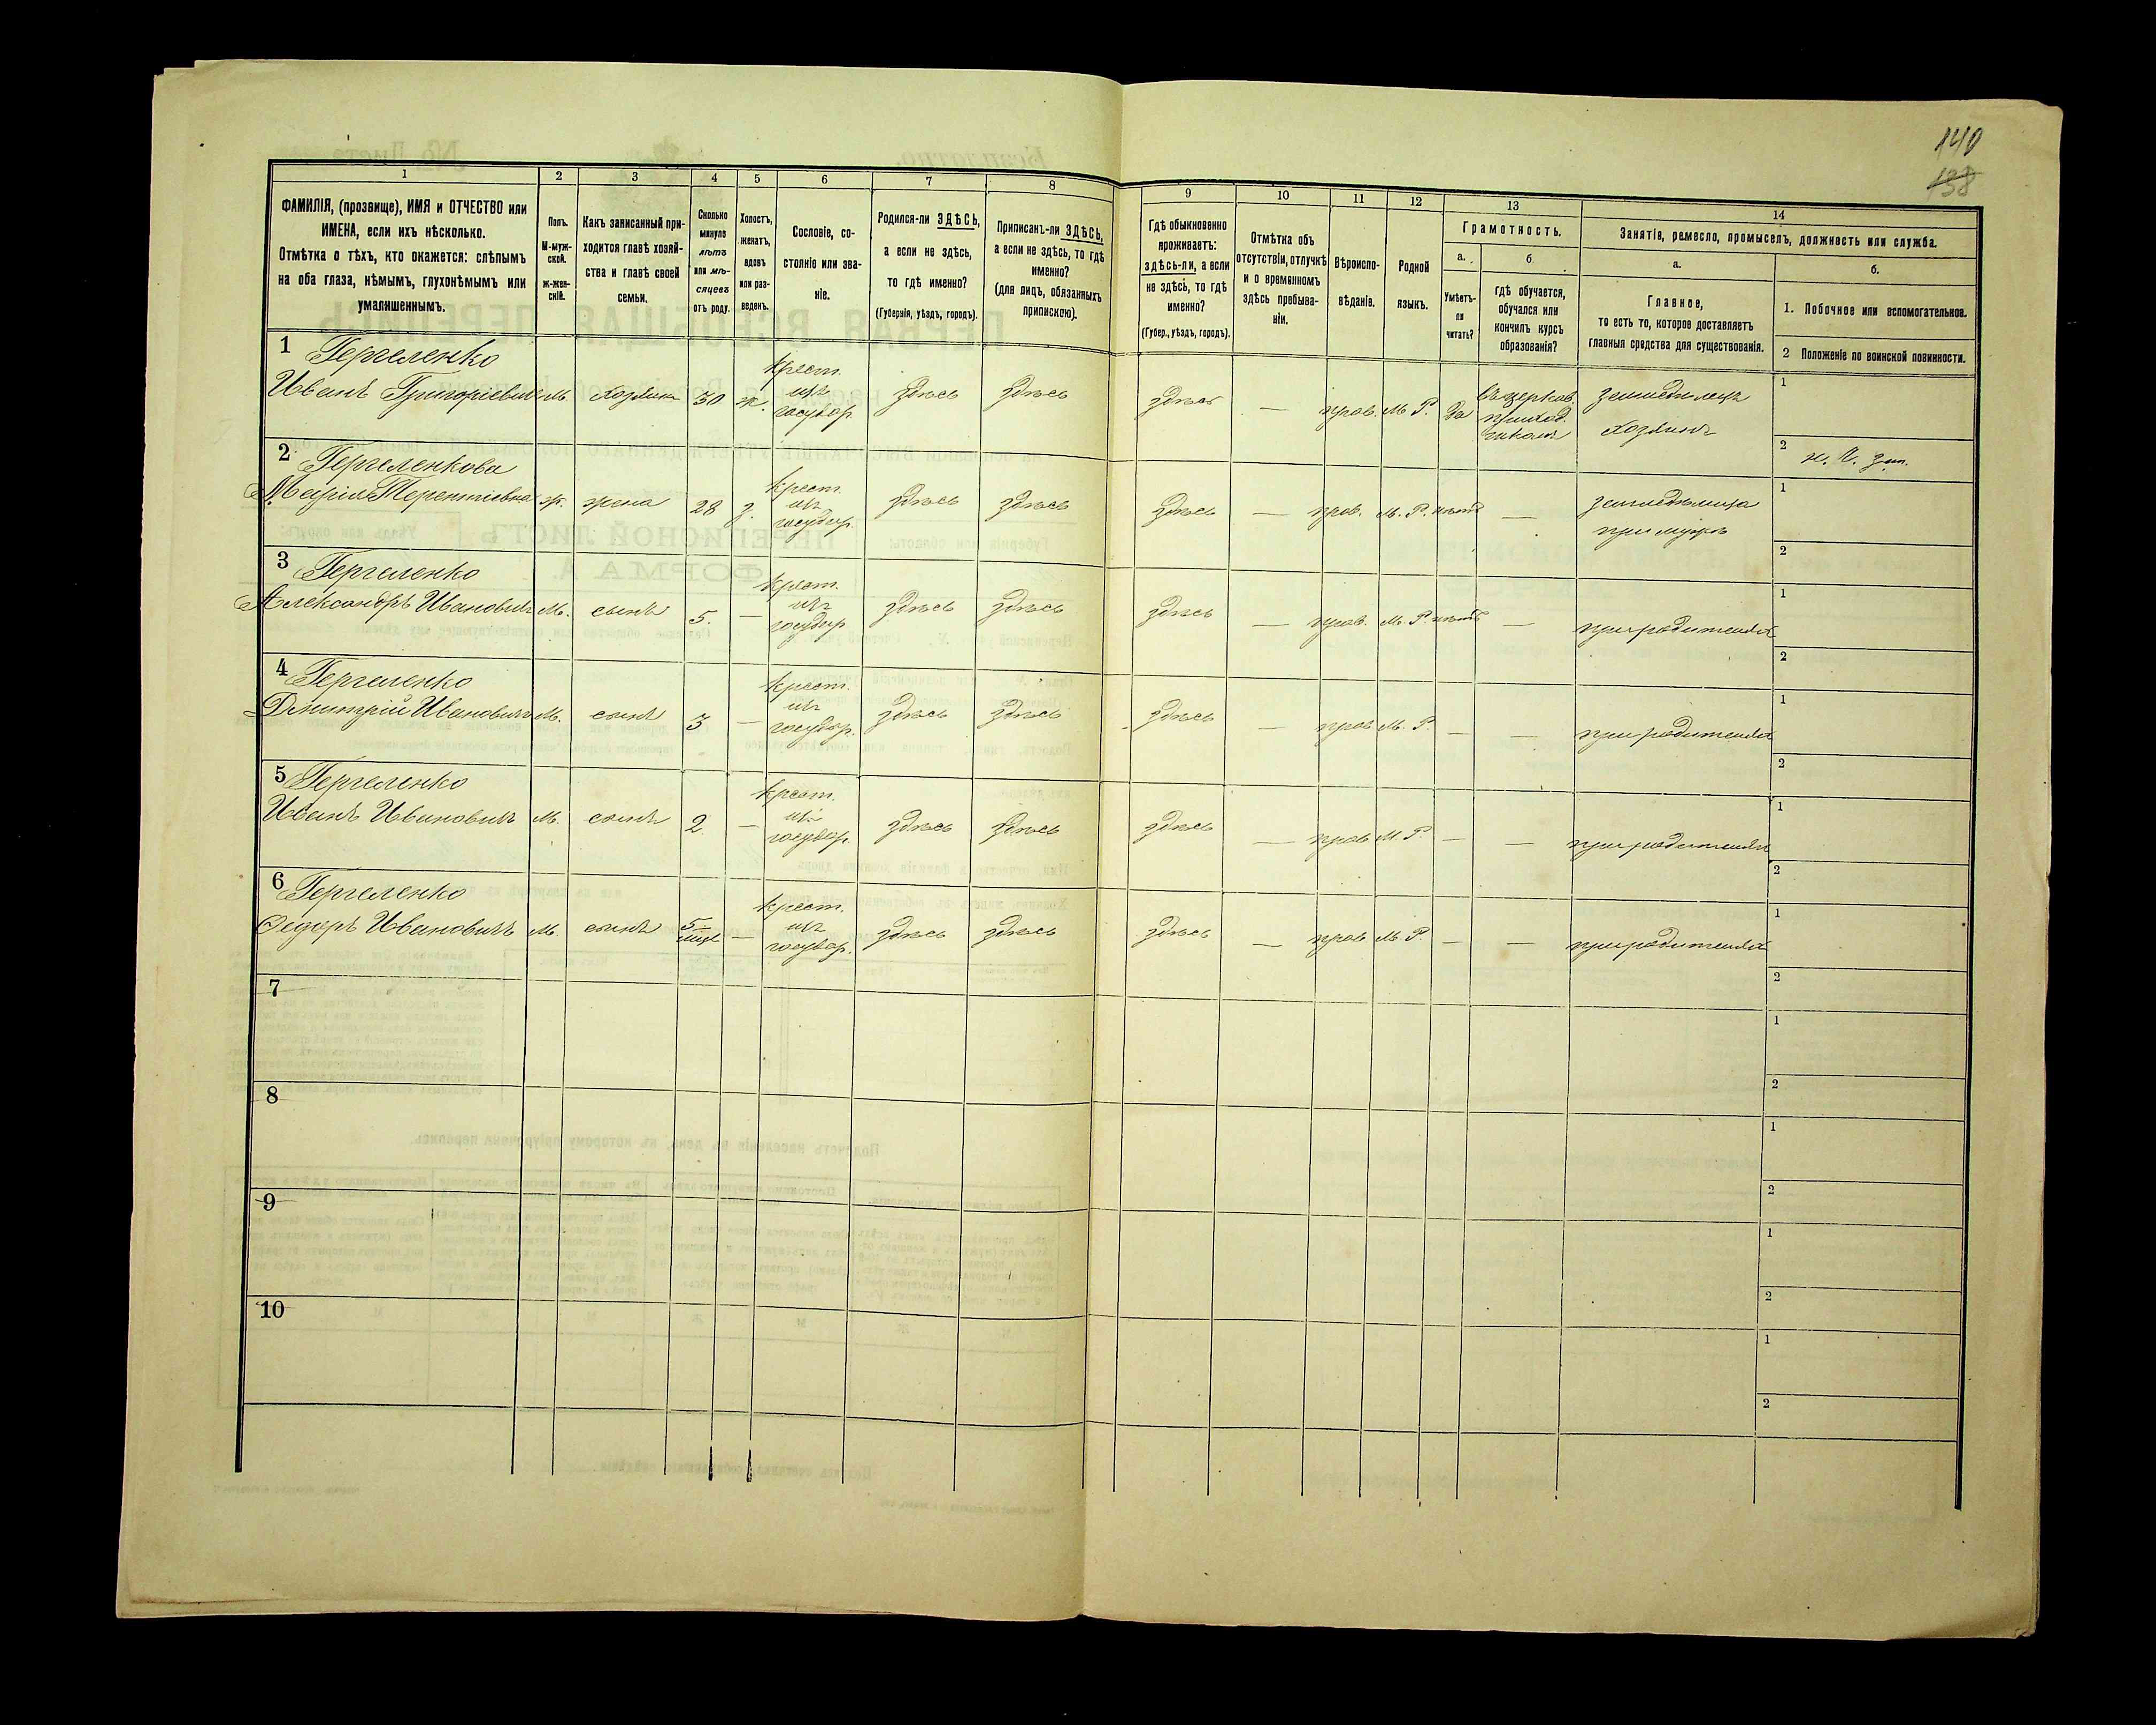 140
138
1
2
3
4
5
6
7
8
9
10
11
12
13
14
ФАМИЛІЯ, (прозвище), ИМЯ и ОТЧЕСТВО или
ИМЕНА, если ихъ нѣсколько.
Отмѣтка о тѣхъ, кто окажется: слѣпымъ
на оба глаза, нѣмымъ, глухонѣмымъ или
умалишеннымъ.
Полъ.
М-муж-
ской.
Ж-жен-
скій.
Какъ записанный при-
ходится главѣ хозяй-
ства и главѣ своей
семьи.
Сколько
минуло
лѣтъ
или мѣ-
сяцевъ
отъ роду.
Холостъ,
женатъ,
вдовъ
или раз-
веденъ.
Сословіе, со-
стояніе или зва-
ніе.
Родился-ли ЗДѢСЬ,
а если не здѣсь,
то гдѣ именно?
(Губернія, уѣздъ, городъ).
Приписанъ-ли ЗДѢСЬ,
а если не здѣсь, то гдѣ
именно?
(для лицъ, обязанныхъ
припискою).
Гдѣ обыкновенно
проживаетъ:
здѣсь-ли, а если
не здѣсь, то гдѣ
именно?
(Губер., уѣздъ, городъ).
Отмѣтка объ
отсутствіи, отлучкѣ
и о временномъ
здѣсь пребыва-
ніи.
Вѣроиспо-
вѣданіе.
Родной
языкъ.
Грамотность.
а.
Умѣетъ-
ли
читать?
б
гдѣ обучается,
обучался или
кончилъ курсъ
образованія?
Занятія, ремесло, промыселъ, должность или служба.
а.
Главное,
то есть то, которое доставляетъ
главныя средства для существованія.
б.
1. Побочное или вспомогательное.
2 Положеніе по воинской повинности.
1 Гергеленко крест.
Иванъ Григорьевич м. хозяинъ 30 ж. изъ здѣсь здѣсь здѣсь — прав. М. Р. да въ церков. земледѣлецъ 1
государ. приход. хозяинъ
школѣ 2
2 Гергеленкова крест.
Марія Терентіевна ж. жена 28 з. изъ здѣсь здѣсь здѣсь — прав. М. Р. нѣтъ — земледѣлица 1
государ. при мужѣ 2
3 Гергеленко крест.
Александръ Ивановичъ м. сынъ 5. — изъ здѣсь здѣсь здѣсь — прав. М. Р. нѣтъ — при родителях 1
государ 2
4 Гергеленко крест.
Дмитрій Ивановичъ м. сынъ 3 — изъ здѣсь здѣсь здѣсь — прав М. Р. — — при родителях 1
государ. 2
5 Гергеленко крест.
Иванъ Ивановичъ м. сынъ 2. — изъ здѣсь здѣсь здѣсь — прав М. Р. — — при родителях 1
государ. 2
6 Гергеленко крест.
Федоръ Ивановичъ м. сынъ 5 — изъ здѣсь здѣсь здѣсь — прав М. Р. — — при родителях 1
государ. 2
7
1
2
8
1
2
9
1
2
10
1
2